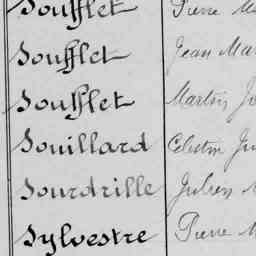 Soufflet Pierre
Soufflet Jean Mar
Soufflet Martin
Souillard Célestin
Sourdrille Julien
Sylvestre Pierre